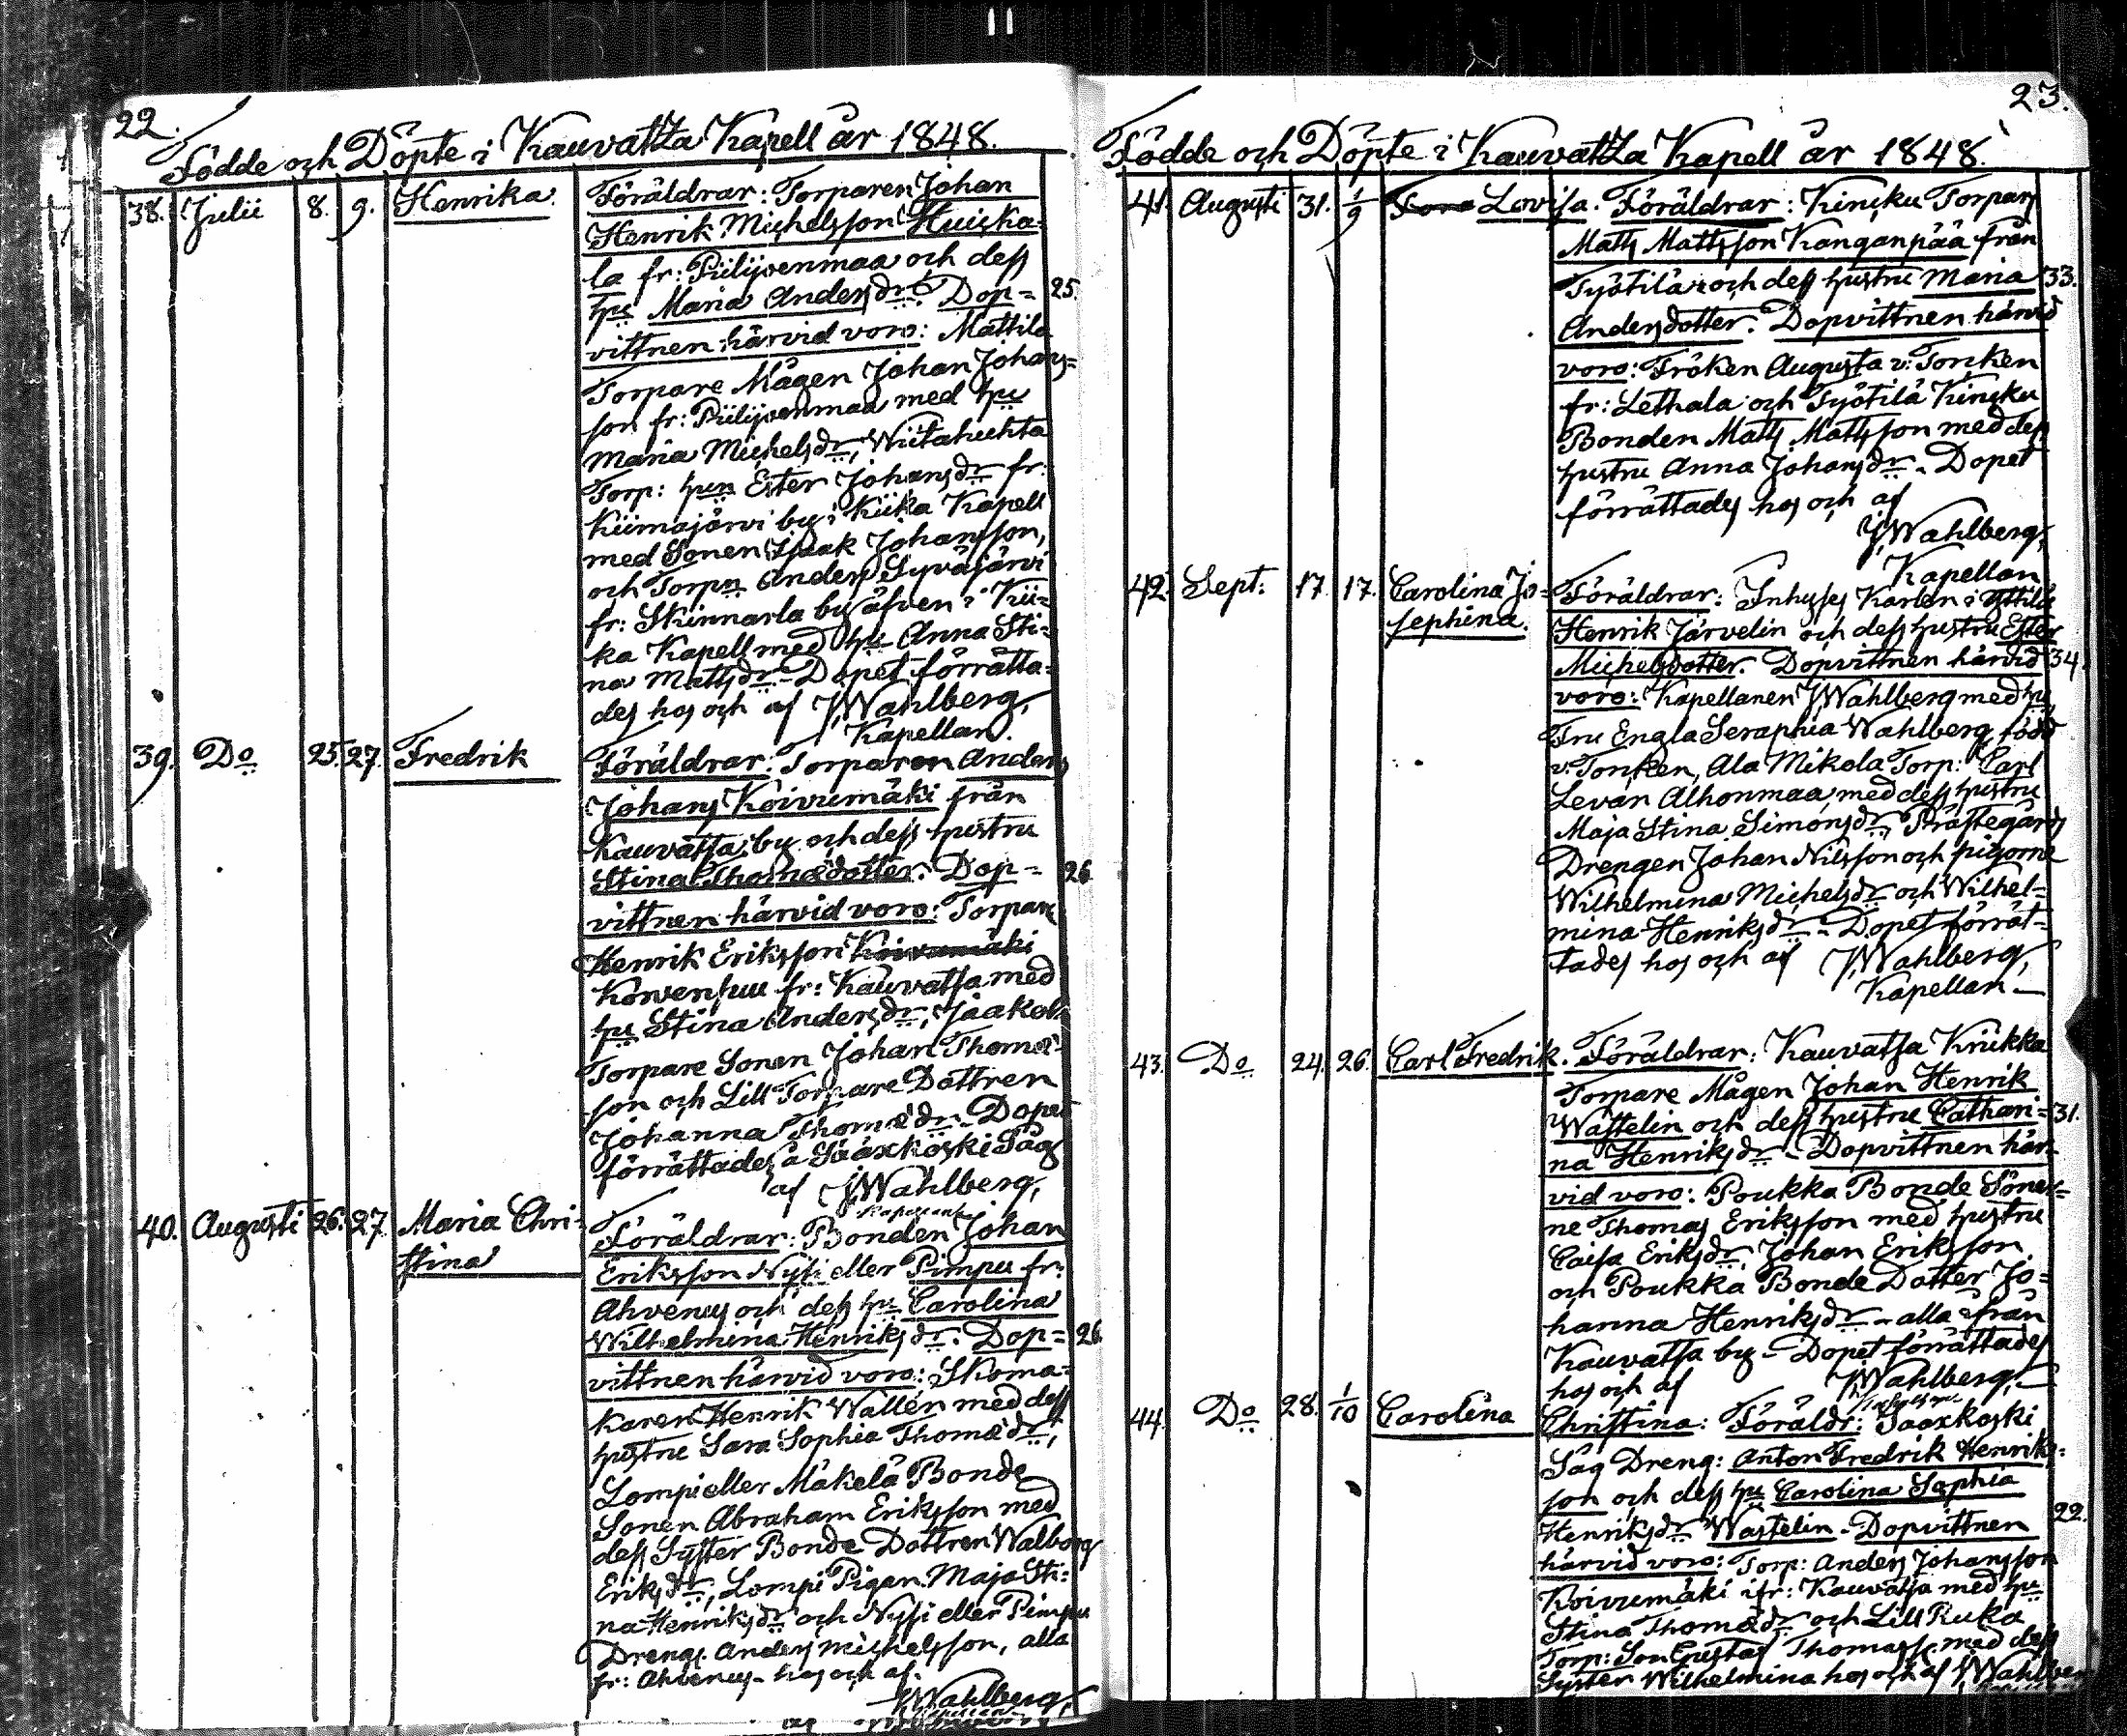 22.
Födde och Döpte i Kauvatza Kapell år 1848.
38. Julii 8. 9. Henrika. Föräldrar: Torparen Johan
Henrik Michelsson Huiska-
la fr: Piilijoenmaa och dess
hu Maria Andersdr. Dop= 25.
vittnen härvid voro: Mattila
Torpare Mågen Johan Johans=
son fr: Piilijoenmaa med hu
Maria Michelsdr, Wiitahuhta
Torp: hun Ester Johansdr fr:
Kiimajärvi by i Kiika Kapell
med Sonen Isaak Johansson,
och Torpn Anders Syväjärvi
fr: Skinnarla by äfven i Kii=
ka Kapell med hu Anna Sti=
na Mattsdr - Dopet förrätta-
des hos och af JWahlberg,
Kapellan.
39. Do 25. 27. Fredrik Föräldrar: Torparen Anders
Johans Koivumäki från
Kauvatsa by och dess hustru
Stina Thomædotter. Dop= 26.
vittnen härvid voro: Torparn
Henrik Eriksson Koivumäki
fr: Kauvatsa med
hu Stina Andersdr, Jaakola
Torpare Sonen Johan Thomæ-
son och Lill Torpare Dottren
Johanna Thomædr - Dopet
förrättades å Sääxkoski Såg
af JWahlberg,
Kapellan
40. Augusti 26. 27 Maria Chri=
stina Föräldrar: Bonden Johan
Eriksson Nysi eller Pimpu fr:
Ahvenus och dess hu Carolina
Wilhelmina Henriksdr. Dop= 26.
vittnen härvid voro: Skoma=
karen Henrik Wallén med dess
hustru Sara Sophia Thomædr,
Lompi eller Mäkelä Bonde
Sonen Abraham Eriksson med
dess Syster Bonde Dottren Walborg
Eriksdr, Lompi Pigan Maja Sti=
na Henriksdr och Nysi eller Pimpu
Dreng. Anders Michelsson, alla
fr: Ahvenus - hos och af.
JWahlberg,
23.
Födde och Döpte i Kauvatza Kapell år 1848.
41. Augusti 31. 1/9 Lovisa. Föräldrar: Kincku Torparn
Matts Mattsson Kanganpää från
Työtilä och dess hustru Maria 33.
Andersdotter. Dopvittnen härvid
voro: Fröken Augusta v: Torcken
fr: Lethala och Työtilä Kincku
Bonden Matts Mattsson med dess
hustru Anna Johansdr - Dopet
förrättades hos och af
JWahlberg,
Kapellan
42. Sept: 17. 17. Carolina Jo=
sephina. Föräldrar: Inhyses Karlen i Yttilä
Henrik Järvelin och dess hustru Ester
Michelsdotter. Dopvittnen härvid 34.
voro: Kapellanen JWahlberg med hu,
Fru Engla Seraphia Wahlberg född
v: Torcken, Ala Mikola Torp: Carl
Levan Alhonmaa med dess hustru
Maja Stina Simonsdr, Prästegårds
Drengen Johan Nilsson och pigorne
Wilhelmina Michelsdr och Wilhel=
mina Henriksdr - Dopet förrät=
tades hos och af JWahlberg,
Kapellan -
43. Do 24. 26. Carl Fredrik. Föräldrar: Kauvatsa Krükka
Torpare Mågen Johan Henrik
Wastelin och dess hustru Cathari= 31.
na Henriksdr - Dopvittnen här=
vid voro: Poukka Bonde Söner=
ne Thomas Eriksson med hustru
Caisa Eriksdr, Johan Eriksson
och Poukka Bonde Dotter Jo=
hanna Henriksdr - alla från
Kauvatsa by - Dopet förrättades
hos och af JWahlberg,
44. Do 28. 1/10 Carolina Christina: Föräldr: Sääxkoski
Såg Dreng: Anton Fredrik Henriks-
son och dess hu Carolina Sophia
Henriksdr Wastelin - Dopvittnen 22.
härvid voro: Torp: Anders Johansson
Koivumäki ifr: Kauvatsa med hu
Stina Thomædr och Lill Ruka
Torp: Son Gustaf Thomass. med dess
Syster Wilhelmina hos och af JWahlberg